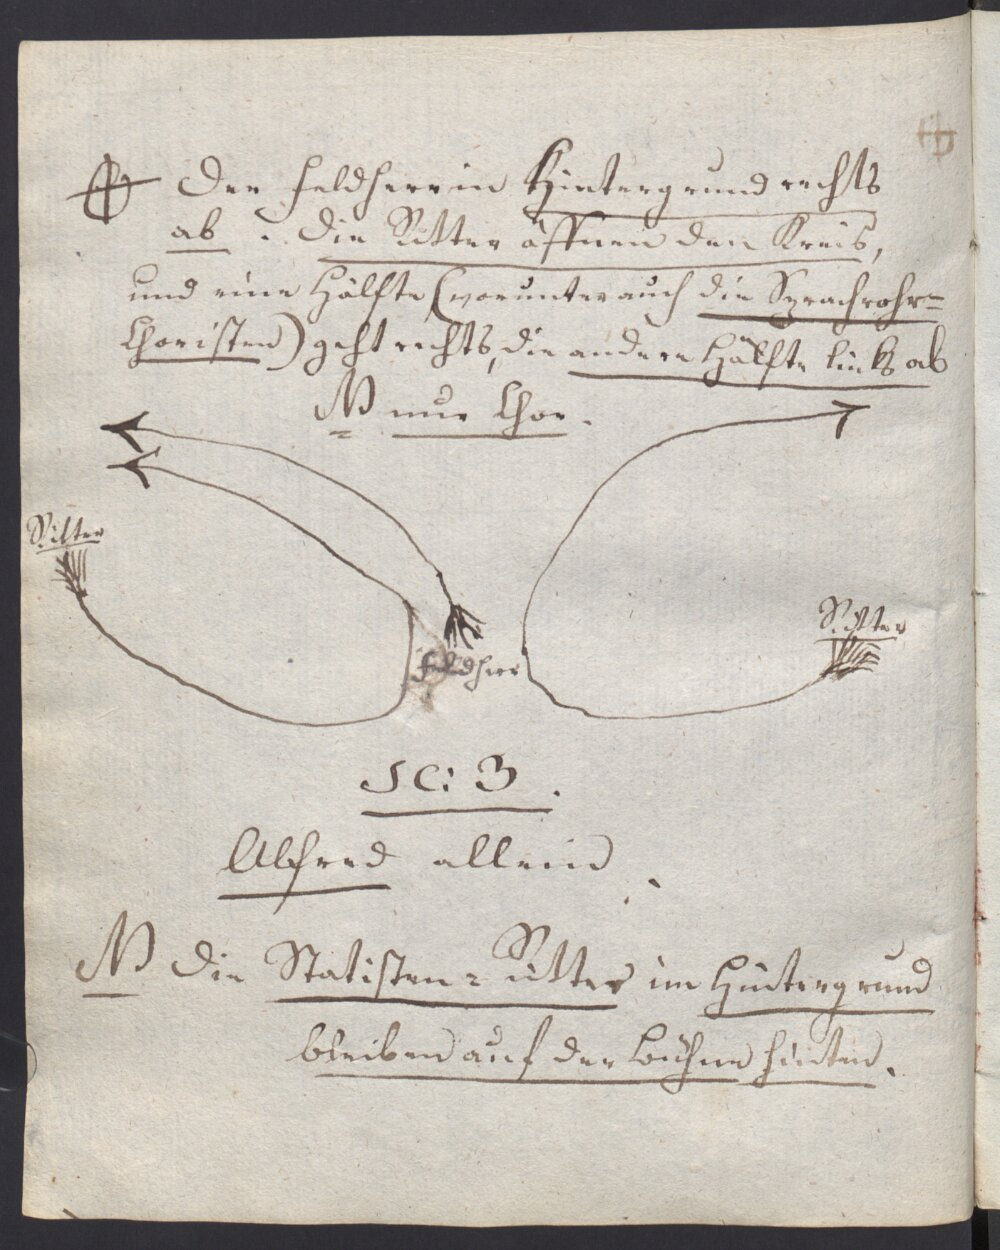 Der Feldherr im Hintergrund rechts
ab. Die Ritter öffnen den Kreis,
und eine Hälfte (worunter auch die Sprachrohr=
Choristen) geht rechts, die andere Hälfte links ab
NB nur Chor.
Ritter
Ritter
Feldherr
Sc: 3.
Alfred allein.
NB Die Statisten=Ritter im Hintergrund
bleiben auf der Bühne hinten.